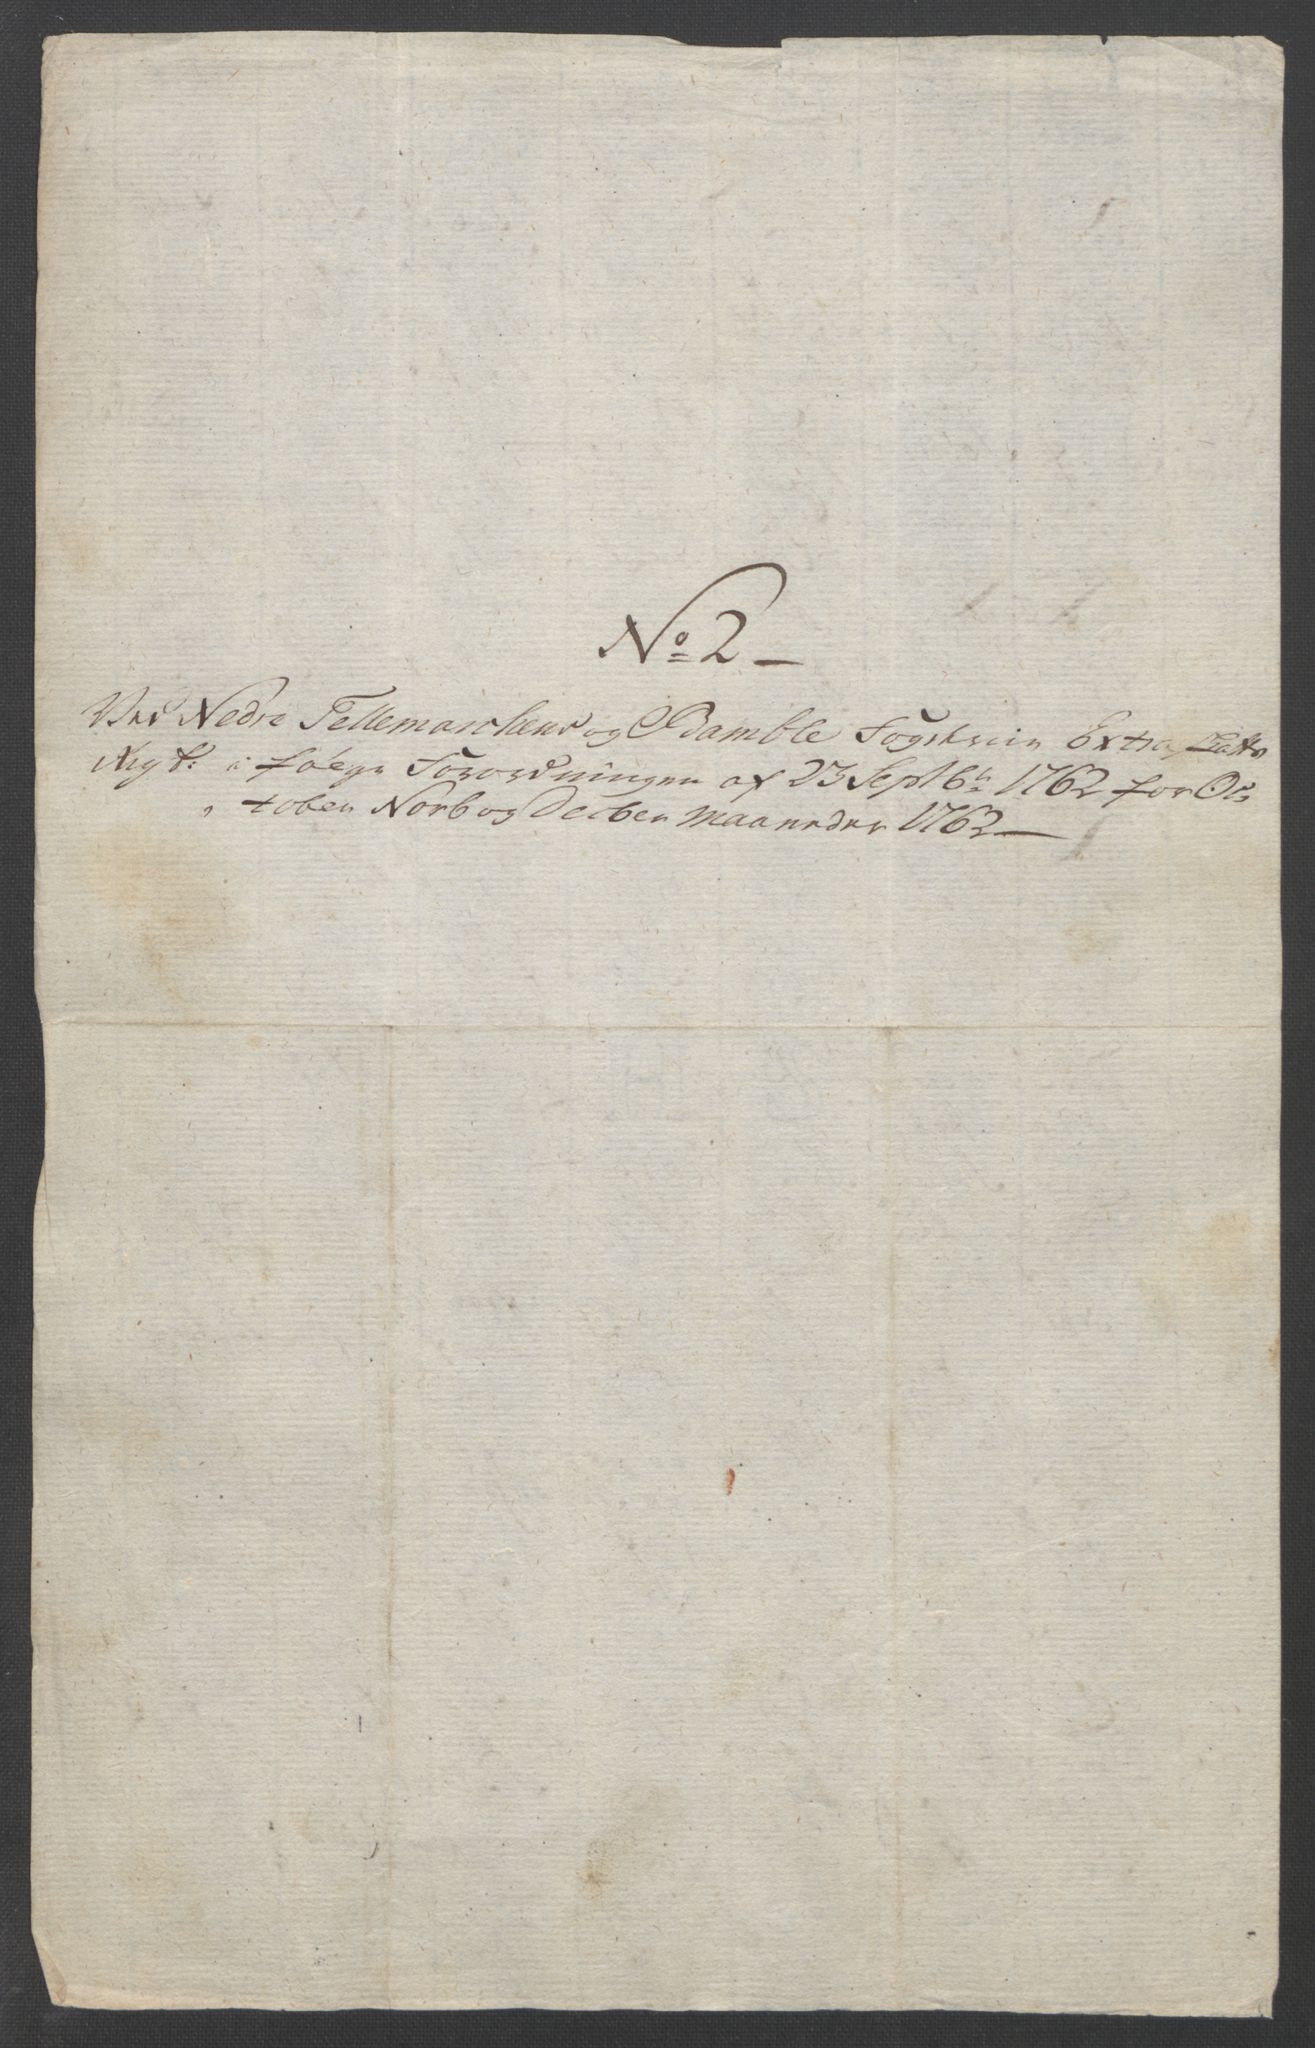 No 2
Ved Nedre Tellemarchens og Bamble Fogderie Extra Skatts
i følge Forordningen af 23 Septbr: 1762 for Oc=
tober Novb og Decber Maaneder 1762